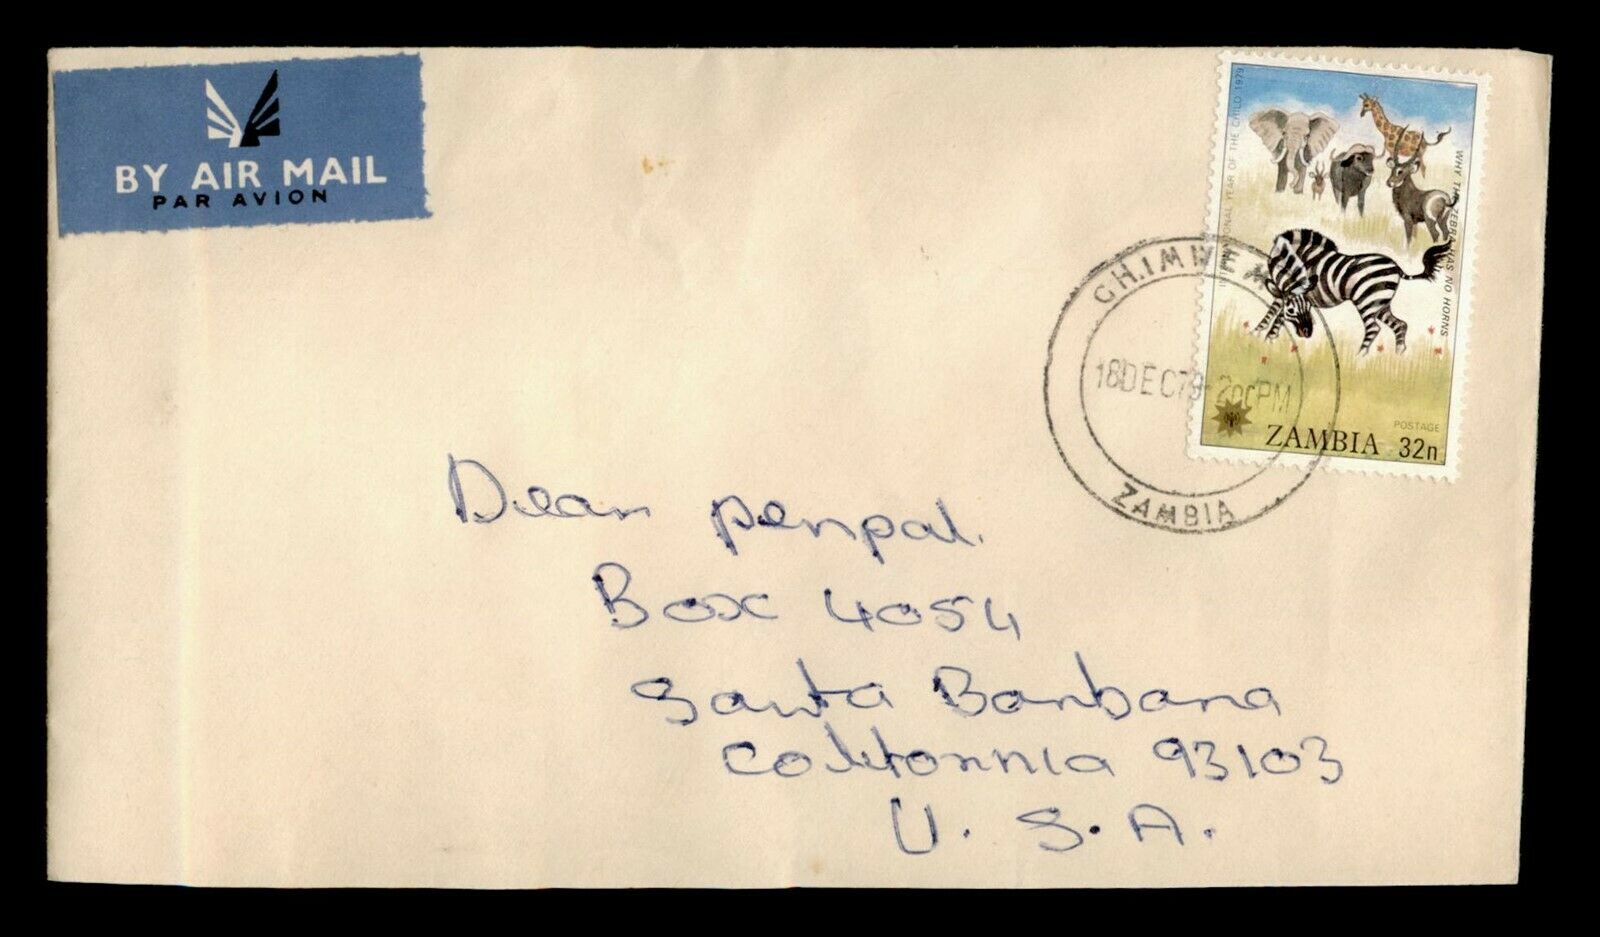 BY AIR MAIL
PAR AVION
INTERNATIONAL YEAR OF THE CHILD 1979
WHY THE ZEBRA HAS NO HORNS
POSTAGE
ZAMBIA 32n
18 DEC 79 PM
ZAMBIA
Dear penpal.
Box 4054
Santa Barbara
California 93103
U.S.A.